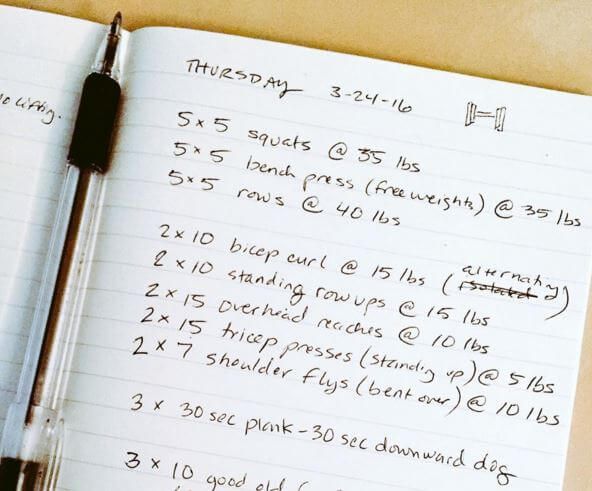 o lifting.
THURSDAY 3-24-16
5x5 squats @ 35 lbs
5x5 bench press (free weights) @ 35 lbs
5x5 rows @ 40 lbs
2x10 bicep curl @ 15 lbs (alternating isolated)
2x10 standing row ups @ 15 lbs
2x15 overhead reaches @ 10 lbs
2x15 tricep presses (standing up) @ 5 lbs
2x7 shoulder flys (bent over) @ 10 lbs
3 x 30 sec plank - 30 sec downward dog
3 x 10 good old